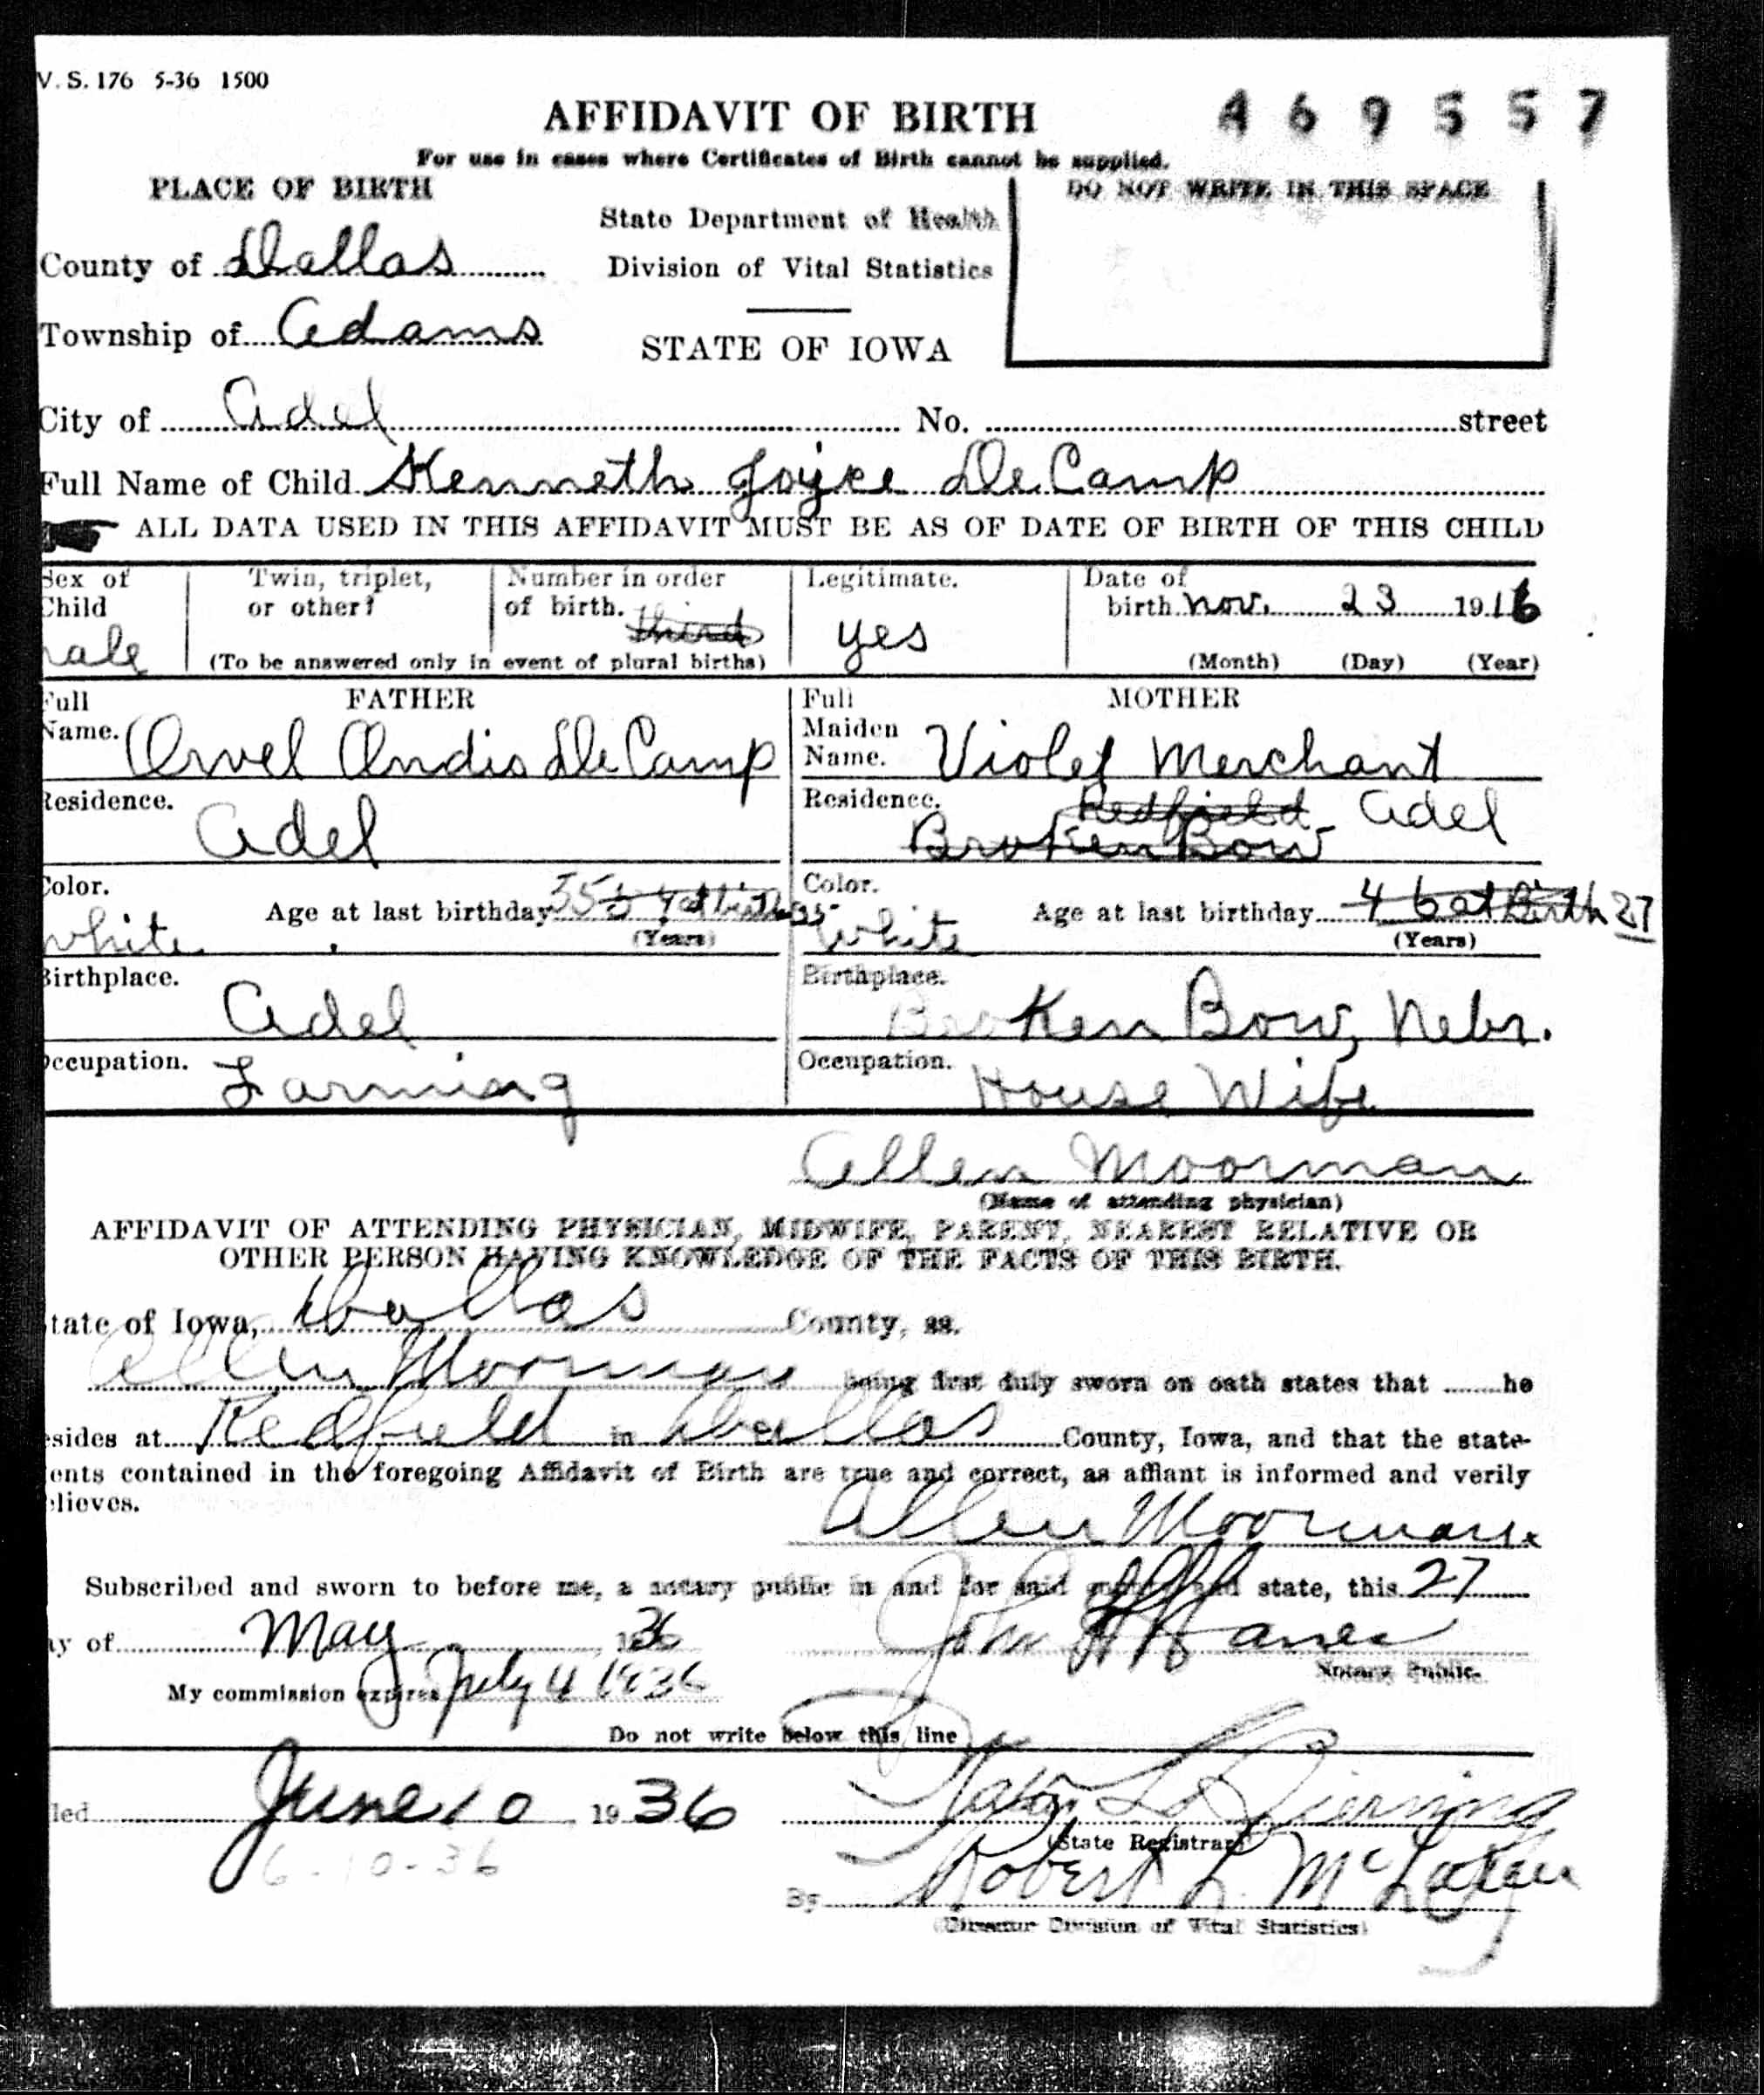 V. S. 176 5-36 1500
469557
AFFIDAVIT OF BIRTH
For use in cases where Certificates of Birth cannot be supplied.
PLACE OF BIRTH
DO NOT WRITE IN THIS SPACE
State Department of Health
County of Dallas
Division of Vital Statistics
Township of Adams
STATE OF IOWA
City of Adel No. street
Full Name of Child Kenneth Joyce De Camp
ALL DATA USED IN THIS AFFIDAVIT MUST BE AS OF DATE OF BIRTH OF THIS CHILD
Sex of Child
ale
Twin, triplet, or other?
Number in order of birth. third
(To be answered only in event of plural births)
Legitimate.
yes
Date of birth Nov. 23 1916
(Month) (Day) (Year)
FATHER
Full Name. Orvel Andis De Camp
Residence.
Adel
Color.
White
Age at last birthday
(Years)
Birthplace.
Adel
Occupation.
Farming
MOTHER
Full Maiden Name. Violet Merchant
Residence. Redfield Adel
Broken Bow
Color.
White
Age at last birthday 46 at Birth 27
(Years)
Birthplace.
Broken Bow, Nebr.
Occupation.
House Wife
Allen Moorman
(Name of attending physician)
AFFIDAVIT OF ATTENDING PHYSICIAN, MIDWIFE, PARENT, NEAREST RELATIVE OR
OTHER PERSON HAVING KNOWLEDGE OF THE FACTS OF THIS BIRTH.
tate of Iowa, Dallas County, ss.
Allen Moorman being first duly sworn on oath states that he
esides at Redfield in Dallas County, Iowa, and that the state-
ents contained in the foregoing Affidavit of Birth are true and correct, as affiant is informed and verily
elieves.
Allen Moorman
Subscribed and sworn to before me, a notary public in and for said county and state, this 27
ay of May 1936
John
Notary Public.
My commission expires July 4 1936
Do not write below this line
led June 10 1936
6-10-36
Walter L. Bierring
(State Registrar)
By Robert L. McLaren
(Director Division of Vital Statistics)